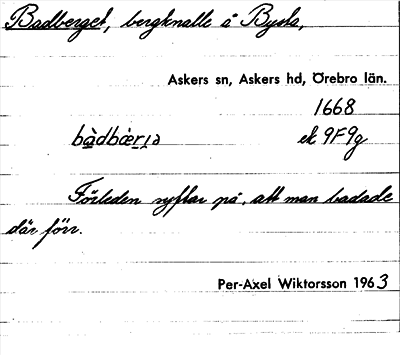 Badberget, bergknalle å Bysta,
Askers sn, Askers hd, Örebro län.
1668
bàdbæ̀rja ek 9F9g
Förleden syftar på, att man badade
där förr.
Per-Axel Wiktorsson 1963